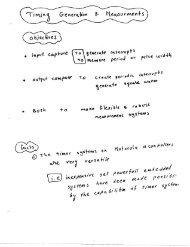 Timing Generation & Measurments
Objectives
• Input capture To generate interrupts
To measure period or pulse width
• output compare To create periodic interrupts
generate square wave
• Both to make flexible & robust
measurement systems
facts
① The timer systems on Motorola mcontrollers
are very versatile
i.e inexpensive yet powerful embedded
systems have been made possible
by the capabilities of timer system